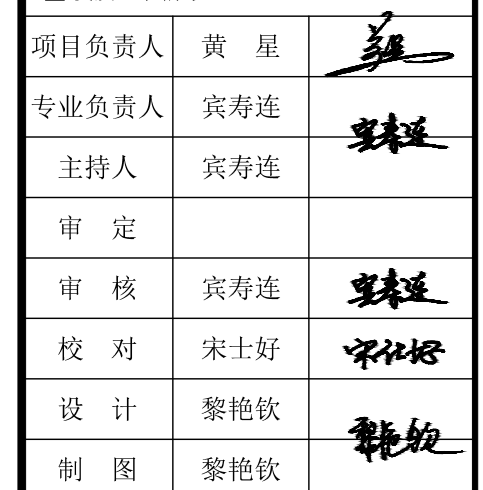 项目负责人 黄 星 黄星
专业负责人 宾寿连 宾寿连
主持人 宾寿连
审 定
审 核 宾寿连 宾寿连
校 对 宋士好 宋仕好
设 计 黎艳钦 黎艳钦
制 图 黎艳钦